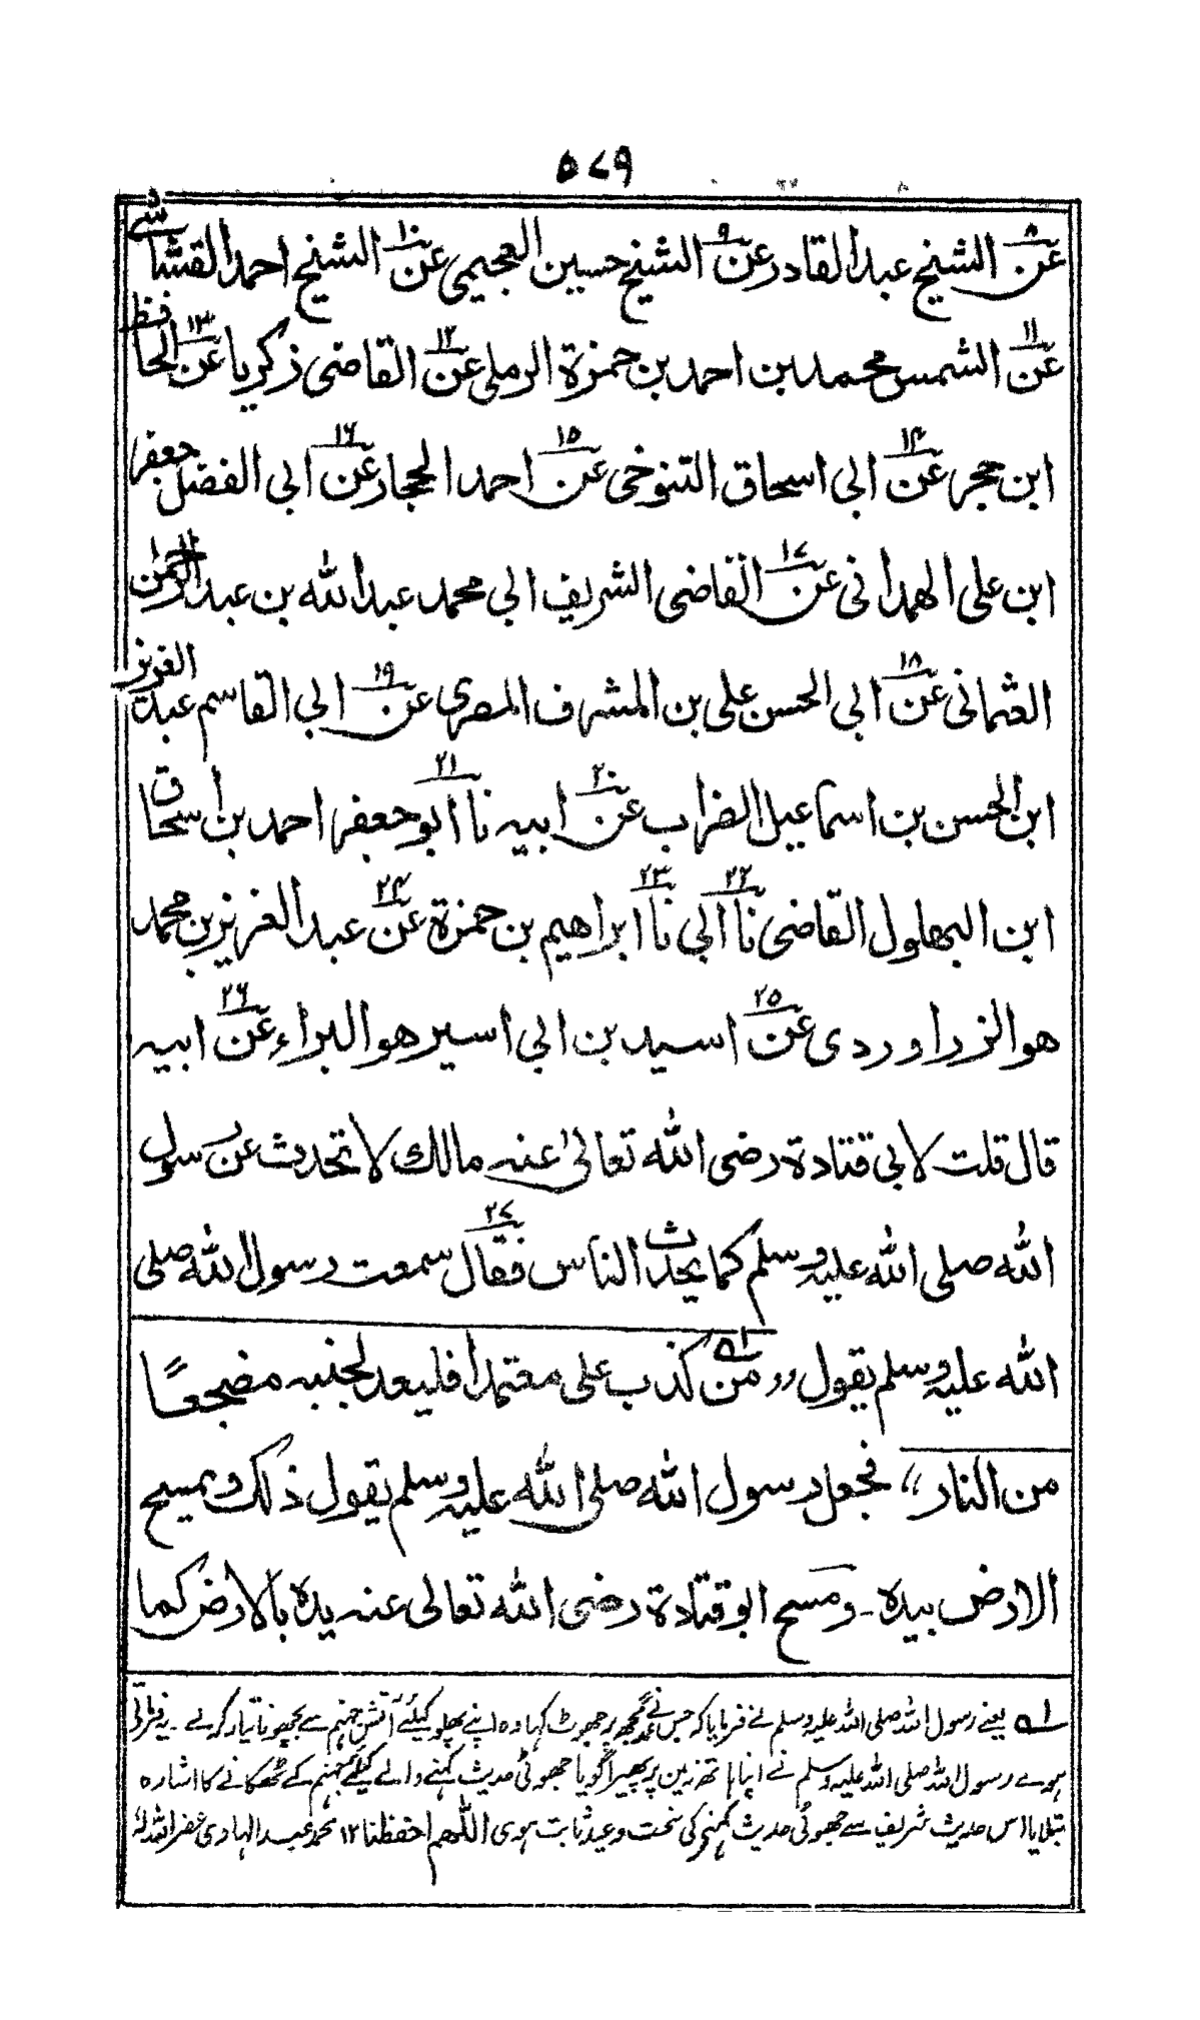 ٥٧٩
عن٨ الشيخ عبد القادر عن٩ الشيخ حسين العجيمي عن١٠ الشيخ احمد القشاشي
عن١١ الشمس محمد بن احمد بن حمزة الرملي عن١٢ القاضى زكريا عن١٣ الحافظ
ابن حجر عن١٤ ابي اسحاق التنوخى عن١٥ احمد الحجار عن١٦ ابي الفضل جعفر
ابن على الهمدانى عن١٧ القاضى الشريف ابي محمد عبد الله بن عبد الرحمن
العثمانى عن١٨ ابي الحسن على بن المشرف المصرى عن١٩ ابي القاسم عبد العزيز
ابن الحسن بن اسماعيل الضراب عن٢٠ ابيه نا٢١ ابو جعفر احمد بن اسحاق
ابن البهلول القاضى نا٢٢ ابي نا٢٣ ابراهيم بن حمزة عن٢٤ عبد العزيز بن محمد
هو الزراوردى عن٢٥ اسيد بن ابي اسير هو البراء عن٢٦ ابيه
قال قلت لابي قتادة رضى الله تعالىٰ عنه مالك لا تحدث عن رسول
الله صلى الله عليه وسلم كما يحدث الناس فقال٢٧ سمعت رسول الله صلى
الله عليه وسلم يقول ,, من١ه كذب على معتمدا فليعد لجنبه مضجعًا
من النار،، فجعل رسول الله صلى الله عليه وسلم يقول ذلك ويمسح
الارض بيده ـ ومسح ابو قتادة رضى الله تعالى عنه يده بالارض كما
١ه یعنے رسول اللہ صلی اللہ علیہ وسلم نے فرمایا کہ جس نے عمداً مجھ پر جھوٹ کہا وہ اپنے پہلو کیلئے آتش جہنم سے بچھونا تیار کرلے۔ یہ فرماتے
ہوے رسول اللہ صلی اللہ علیہ وسلم نے اپنا ہاتھ زمین پر پھیرا گویا جھوٹی حدیث کہنے والے کیلئے جہنم کے ٹھکانے کا اشارہ
بتلایا اس حدیث شریف سے جھوٹی حدیث کہنے کی سخت وعید ثابت ہوی اللّٰھم احفظنا ١٢ محمد عبد الہادی غفر اللہ لہ